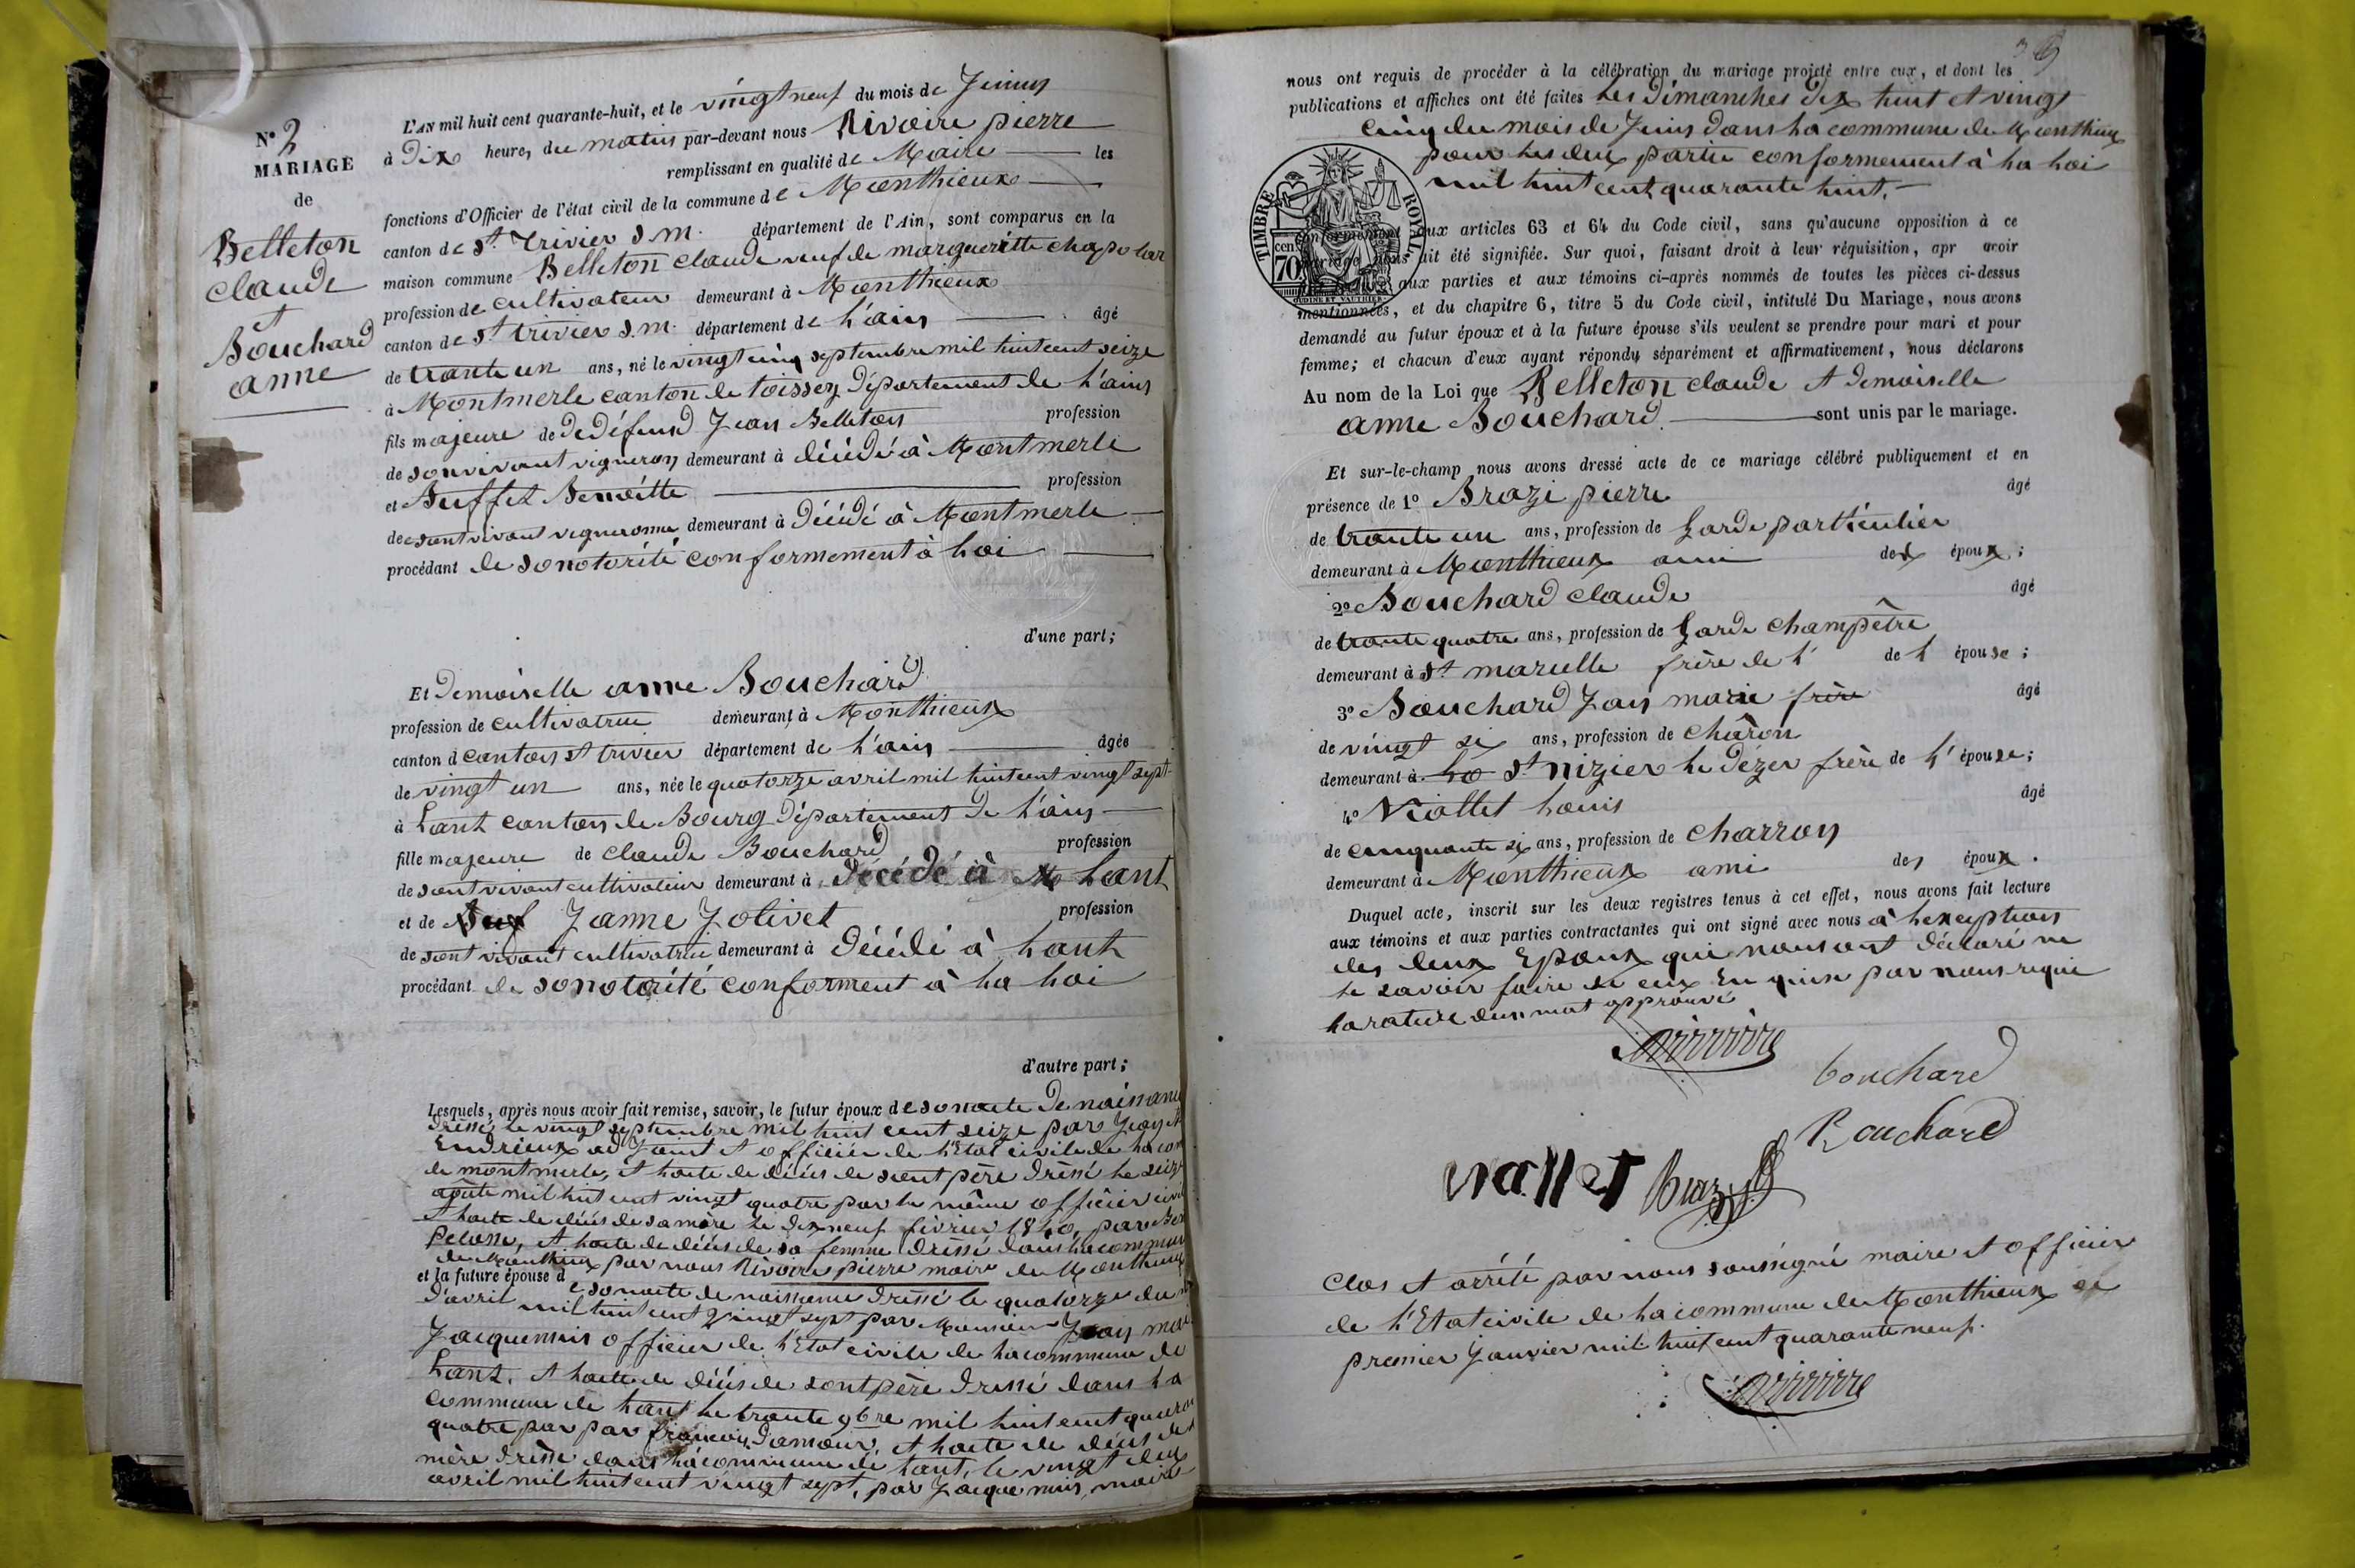 N° 2
MARIAGE
de
Belleton
claude
et
Bouchard
anne
L'AN mil huit cent quarante-huit, et le vingt neuf du mois de Juin
à dix heure, du matin par-devant nous Rivoire pierre
remplissant en qualité de Maire les
fonctions d'Officier de l'état civil de la commune de Monthieux
canton de St. trivier s. m. département de l'Ain, sont comparus en la
maison commune Belleton claude veuf de margueritte chapolar
profession de cultivateur demeurant à Monthieux
canton de St trivier s. m. département de l'ain âgé
de trante un ans, né le vingt cinq septembre mil huit cent seize
à Montmerle canton de toissey Département de l'ain
fils majeure de dedéfund Jean Belleton profession
de son vivant vigneron demeurant à décédé à Montmerle
et Buffet Benoitte profession
de sont vivant vigneronne demeurant à décédé à Montmerle
procédant de sonotorité conformement à loi
d'une part;
Et Demoiselle anne Bouchard
profession de cultivatrice demeurant à Monthieux
canton d canton St trivier département de l'ain âgée
de vingt un ans, née le quatorze avril mil huit cent vingt sept
à Lant canton de Bourg Département de l'ain
fille majeure de claude Bouchard profession
de sont vivant cultivateur demeurant à décédé à Lant
et de Janne Jolivet profession
de sont vivant cultivatrice demeurant à décédé à Lant
procédant de sonotorité conforment à la loi
d'autre part;
Lesquels, après nous avoir fait remise, savoir, le futur époux de sonacte de naissance
dressé le vingt septembre mil huit cent seize par Jean
Endrieux adjoint et officier de l'Etat civile de la com
de montmerle, et lacte de décès de sont père dressé le seize
aôute mil huit cent vingt quatre par le même officier civil
et lacte de décés de sa mère le dix neuf févrivr 1840, par
Pelosse, et lacte de décés de sa femme dressé dans la commune
de Monthieux par nous Rivoire pierre maire de Monthieux
et la future épouse de sonacte de naissance dressé le quatorze du
d'avril mil huit cent vingt sept par Monsieur Jean mari
Jacquemin officier de l'Etat civile de la commune de
Lant. et lacte de décès de sont père dressé dans la
commune de Lant le trante 9bre mil huit cent quaran
quatre par par francois Damour, et lacte de décés de
mère dressé dans la commune de Lant, le vingt deux
avril mil huit cent vingt sept, par Jacquemin, maire
nous ont requis de procéder à la célébration du mariage projeté entre eux, et dont les
publications et affiches ont été faites les dimanches dix huit et vingt
cinq du mois de Juin dans la commune de Monthieux
pour les deux partie conformement à la loi
mil huit cent quarante huit.
TIMBRE ROYAL
70 cen
OUDINE ET VAUTHIER
conformement aux articles 63 et 64 du Code civil, sans qu'aucune opposition à ce
mariage nous ait été signifiée. Sur quoi, faisant droit à leur réquisition, apr avoir
aux parties et aux témoins ci-après nommés de toutes les pièces ci-dessus
mentionnées, et du chapitre 6, titre 5 du Code civil, intitulé Du Mariage, nous avons
demandé au futur époux et à la future épouse s'ils veulent se prendre pour mari et pour
femme; et chacun d'eux ayant répondu séparément et affirmativement, nous déclarons
Au nom de la Loi que Belleton claude et demoiselle
anne Bouchard sont unis par le mariage.
Et sur-le-champ nous avons dressé acte de ce mariage célébré publiquement et en
présence de 1° Brazi pierre âgé
de trante un ans, profession de Garde particulier
demeurant à Monthieux ami des époux;
2° Bouchard claude âgé
de trante quatre ans, profession de Garde champêtre
demeurant à St marcelle frère de l' de l épouse;
3° Bouchard Jan marie frère âgé
de vingt si ans, profession de chârон
demeurant à St nizier le dézer frère de l' épouse;
4° Viallet louis âgé
de cinquante six ans, profession de charron
demeurant à Monthieux ami des époux.
Duquel acte, inscrit sur les deux registres tenus à cet effet, nous avons fait lecture
aux témoins et aux parties contractantes qui ont signé avec nous à lexception
des deux Epoux qui nous ont déclaré ne
le savoir faire de eux En quise par nous requi
larature dun mot approuvé
bouchard
Bouchard
viallet
Clos et arrété par nous soussigné maire et officier
de l'Etat civile de la commune de Monthieux ce
premier Janvier mil huit cent quarante neuf.